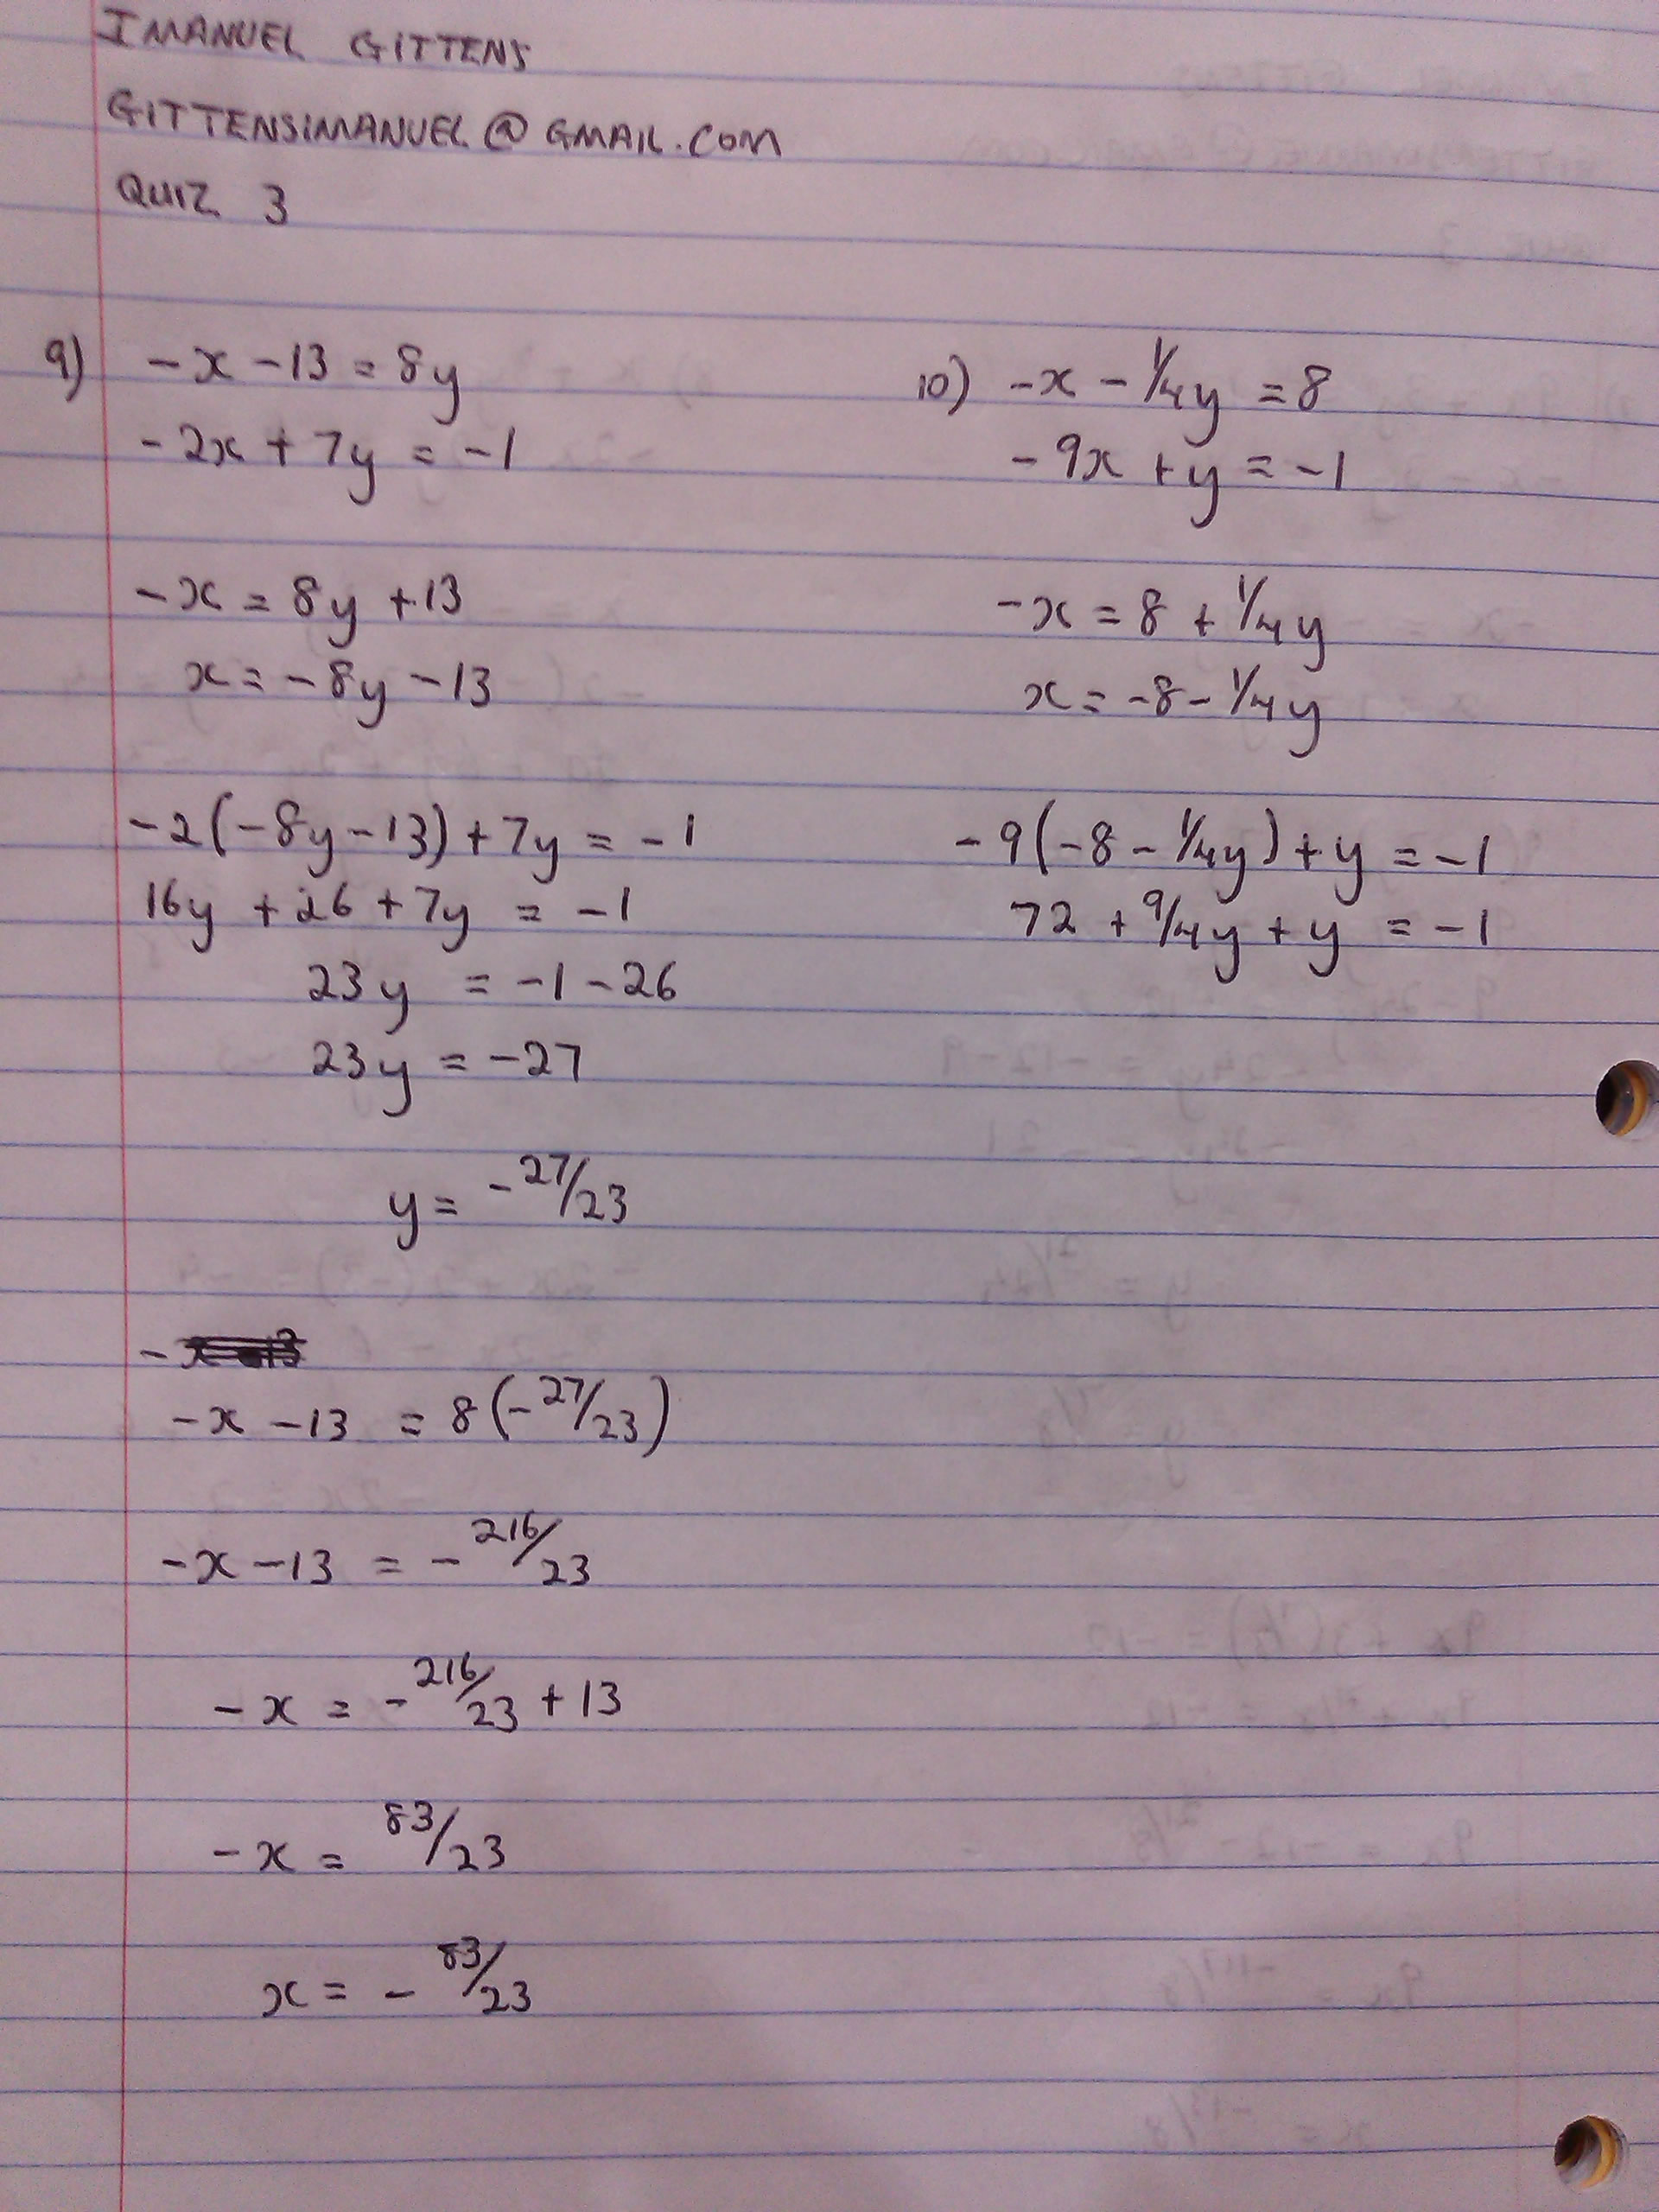 IMANUEL GITTENS
GITTENSIMANUEL@GMAIL.COM
QUIZ 3
9) -x - 13 = 8y
-2x + 7y = -1
-x = 8y + 13
x = -8y - 13
-2(-8y - 13) + 7y = -1
16y + 26 + 7y = -1
23y = -1 - 26
23y = -27
y = -27/23
-x - 13 = 8(-27/23)
-x - 13 = -216/23
-x = -216/23 + 13
-x = 83/23
x = -83/23
10) -x - 1/4y = 8
-9x + y = -1
-x = 8 + 1/4y
x = -8 - 1/4y
-9(-8 - 1/4y) + y = -1
72 + 9/4y + y = -1